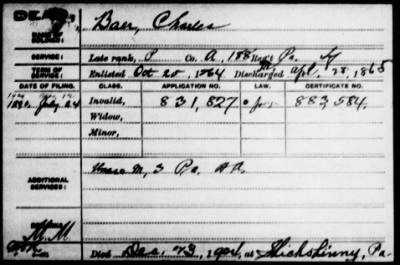 DEAD,
NAME OF SOLDIER:
Baer, Charles
SERVICE:
Late rank, P Co. A, 188 Reg't Pa.
TERM OF SERVICE:
Enlisted Oct 20, 1864, Discharged Apl. 28, 1865
DATE OF FILING. CLASS. APPLICATION NO. LAW. CERTIFICATE NO.
July 24 Invalid, 831,827 883,584.
Widow,
Minor,
ADDITIONAL SERVICES:
M, 3 Pa. H A.
Died Dec. 23, 1904, at Shickshinny, Pa